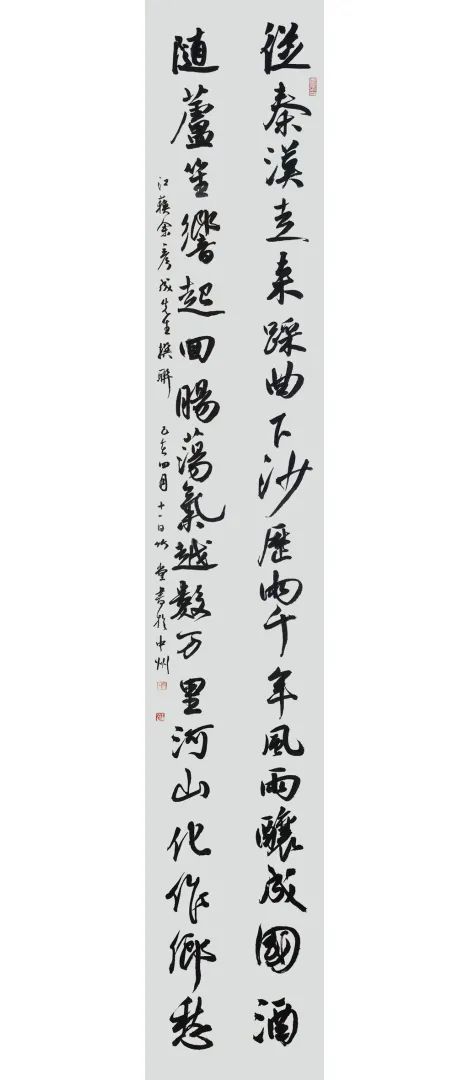 從秦漢走來踩曲下沙歷兩千年風雨釀成國酒
隨蘆笙響起回腸蕩氣越數万里河山化作鄉愁
江蘇余彥成先生撰聯 己亥四月十一日竹堂書於中州